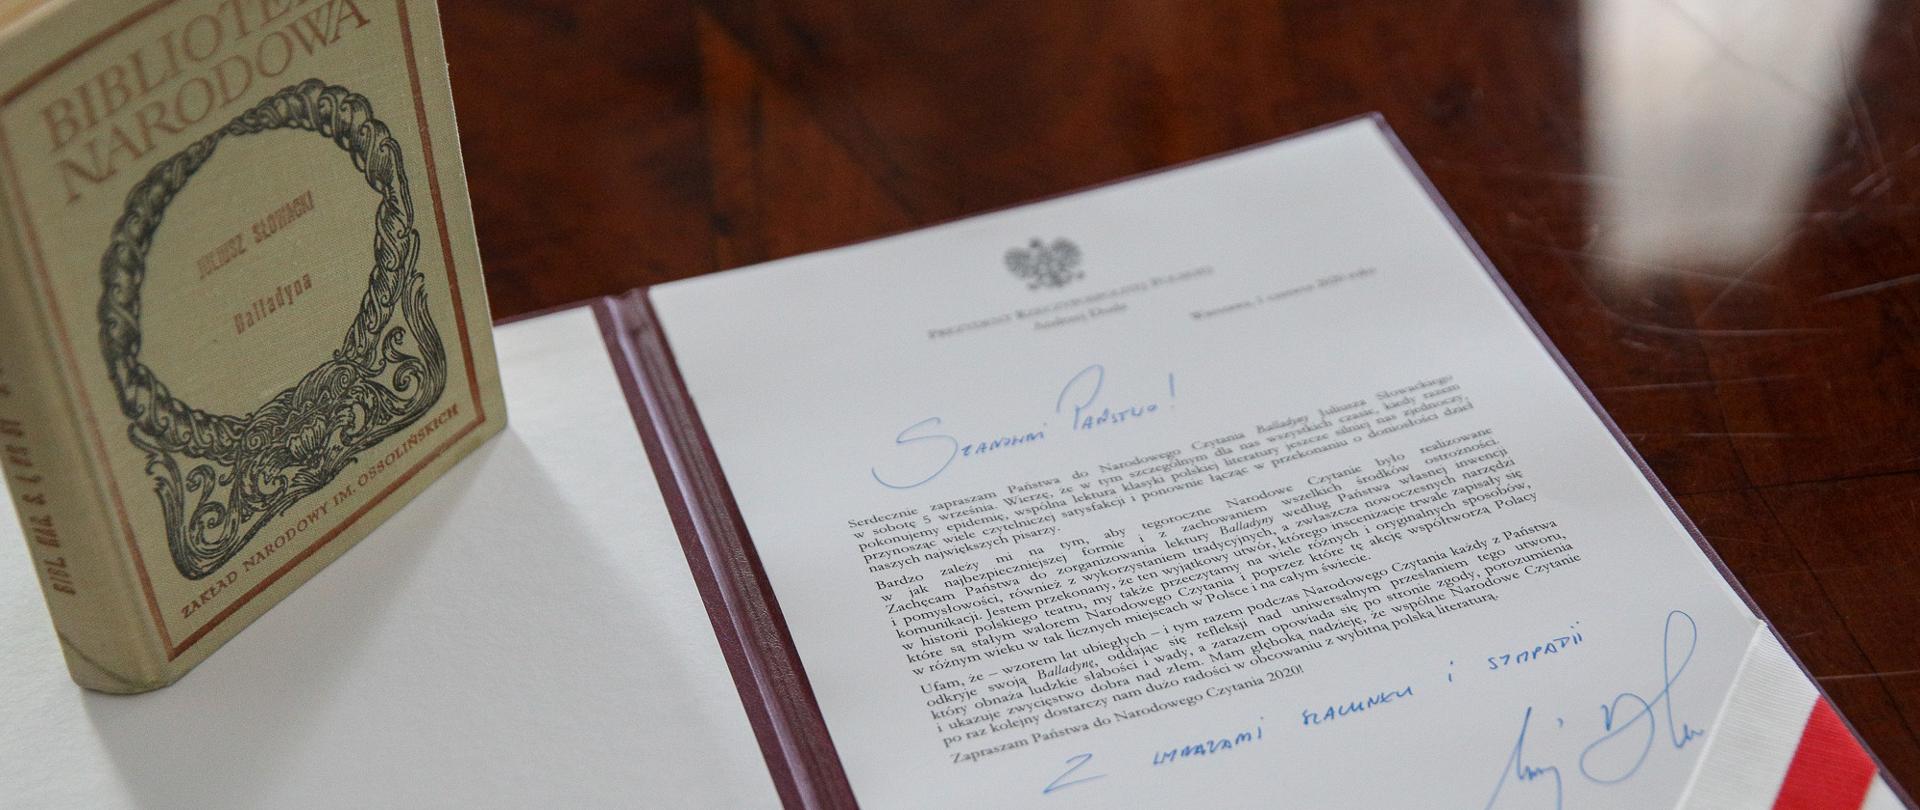 BIBLIOTE
NARODOWA
JULIUSZ SŁOWACKI
Balladyna
ZAKŁAD NARODOWY IM. OSSOLIŃSKICH
PREZYDENT RZECZYPOSPOLITEJ POLSKIEJ
Andrzej Duda
Warszawa, 1 czerwca 2020 roku
Szanowni Państwo!
Serdecznie zapraszam Państwa do Narodowego Czytania Balladyny Juliusza Słowackiego
w sobotę 5 września. Wierzę, że w tym szczególnym dla nas wszystkich czasie, kiedy razem
pokonujemy epidemię, wspólna lektura klasyki polskiej literatury jeszcze silniej nas zjednoczy,
przynosząc wiele czytelniczej satysfakcji i ponownie łącząc w przekonaniu o doniosłości dzieł
naszych największych pisarzy.
Bardzo zależy mi na tym, aby tegoroczne Narodowe Czytanie było realizowane
w jak najbezpieczniejszej formie i z zachowaniem wszelkich środków ostrożności.
Zachęcam Państwa do zorganizowania lektury Balladyny według Państwa własnej inwencji
i pomysłowości, również z wykorzystaniem tradycyjnych, a zwłaszcza nowoczesnych narzędzi
komunikacji. Jestem przekonany, że ten wyjątkowy utwór, którego inscenizacje trwale zapisały się
w historii polskiego teatru, my także przeczytamy na wiele różnych i oryginalnych sposobów,
które są stałym walorem Narodowego Czytania i poprzez które tę akcję współtworzą Polacy
w różnym wieku w tak licznych miejscach w Polsce i na całym świecie.
Ufam, że – wzorem lat ubiegłych – i tym razem podczas Narodowego Czytania każdy z Państwa
odkryje swoją Balladynę, oddając się refleksji nad uniwersalnym przesłaniem tego utworu,
który obnaża ludzkie słabości i wady, a zarazem opowiada się po stronie zgody, porozumienia
i ukazuje zwycięstwo dobra nad złem. Mam głęboką nadzieję, że wspólne Narodowe Czytanie
po raz kolejny dostarczy nam dużo radości w obcowaniu z wybitną polską literaturą.
Zapraszam Państwa do Narodowego Czytania 2020!
Z wyrazami szacunku i sympatii